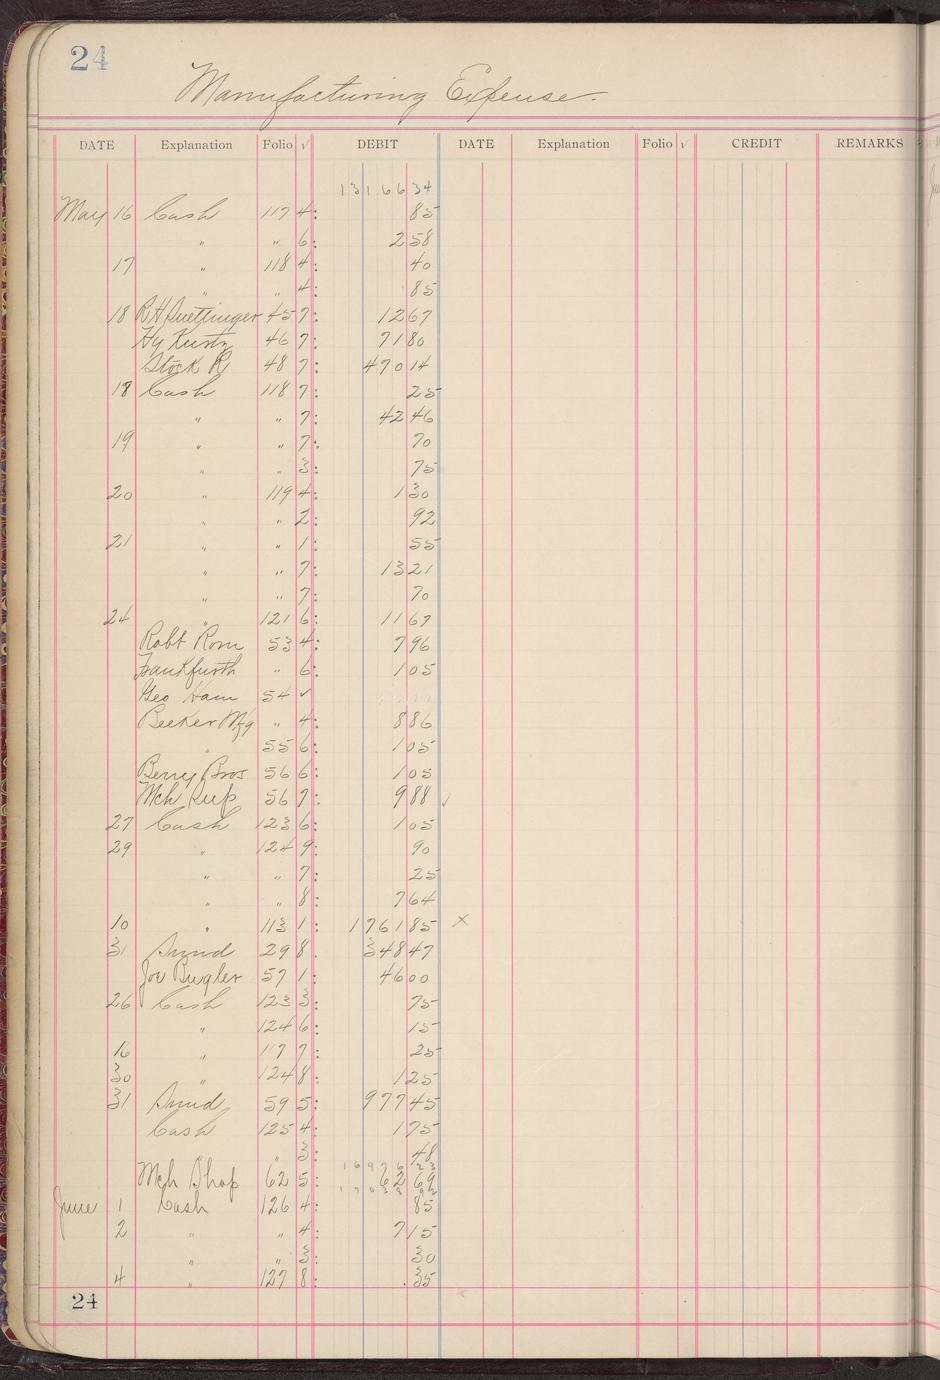 24
Manufacturing Expense.
DATE Explanation Folio √ DEBIT DATE Explanation Folio √ CREDIT REMARKS
13166 34
May 16 Cash 117 4: 85
" " 6: 2 58
17 " 118 4: 40
" " 4: 85
18 R H 45 7: 12 67
Hy Kurtz 46 7: 71 80
Stock R 48 7: 470 14
18 Cash 118 7: 25
" " 7: 42 46
19 " " 7: 70
" " 3: 75
20 " 119 4: 1 30
" " 2: 92
21 " " 1: 55
" " 7: 13 21
" " 7: 70
24 " 121 6: 11 67
Robt Rom 53 4: 7 96
Frankfurth " 6: 1 05
Geo Ham 54 ✓
Becker Mfg " 4: 8 86
" 55 6: 1 05
Berry Bros 56 6: 1 05
Mch Sup 56 7: 9 88 ✓
27 Cash 123 6: 1 05
29 " 124 9: 90
" " 7: 25
" " 8: 7 64
10 " 113 1: 1761 85 X
31 Sund 29 8. 348 47
Joe Bugler 57 1: 46 00
26 Cash 123 3: 75
" 124 6: 15
16 " 117 7: 25
30 " 124 8: 1 25
31 Sund 59 5: 977 45
Cash 125 4: 1 75
" 3: 48
16976 23
Mch Shop 62 5: 62 69
17038 92
June 1 Cash 126 4: 85
2 " " 4: 7 15
" " 3: 30
4 " 127 8: .35
24